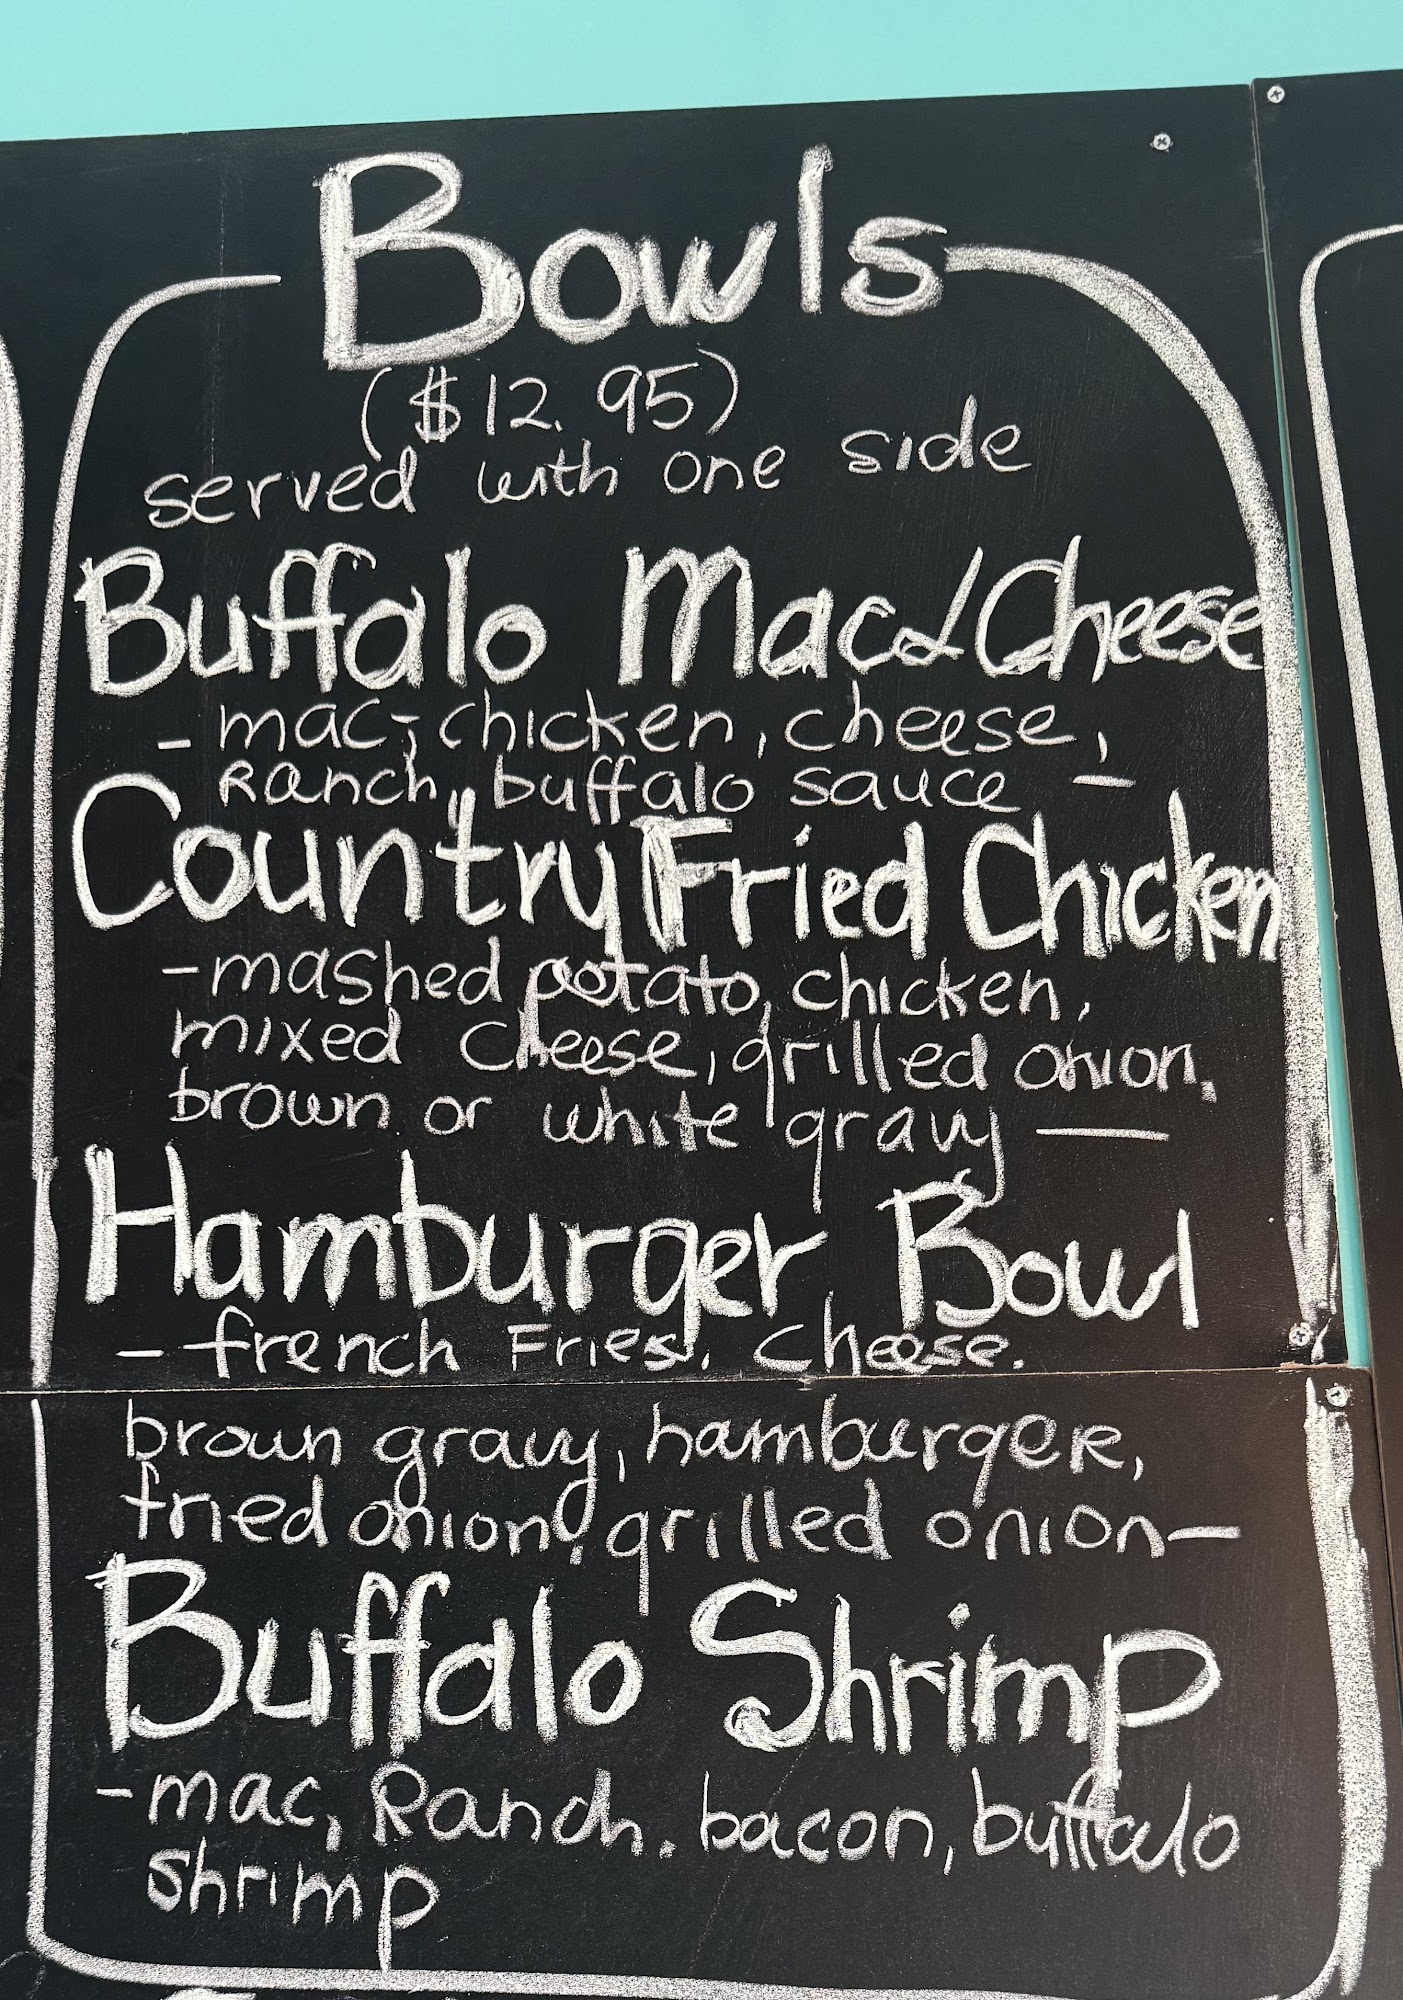 Bowls
($12.95)
served with one side
Buffalo Mac & Cheese
- mac, chicken, cheese,
Ranch, buffalo sauce -
Country Fried Chicken
- mashed potato, chicken,
mixed cheese, grilled onion,
brown or white gravy -
Hamburger Bowl
- french Fries, cheese,
brown gravy, hamburger,
fried onion, grilled onion -
Buffalo Shrimp
- mac, Ranch, bacon, buffalo
shrimp